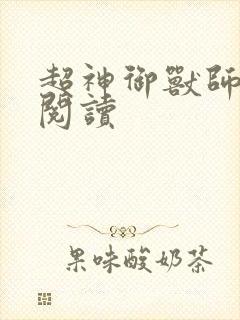 超神御獸師
閱讀
果味酸奶茶